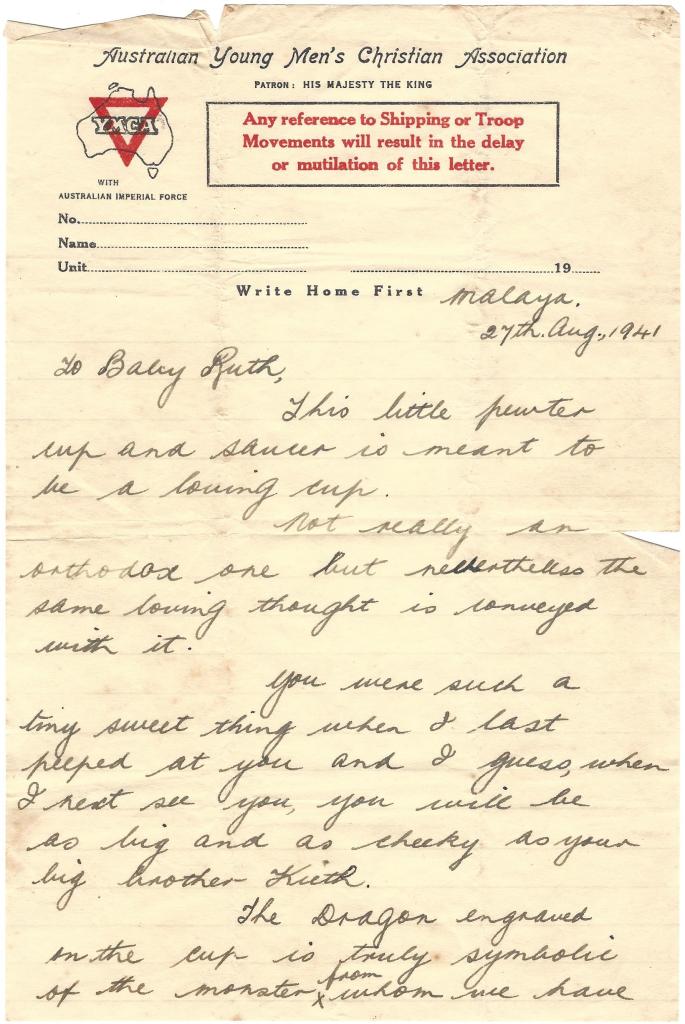 Australian Young Men's Christian Association
PATRON: HIS MAJESTY THE KING
YMCA
WITH
AUSTRALIAN IMPERIAL FORCE
Any reference to Shipping or Troop
Movements will result in the delay
or mutilation of this letter.
No.
Name
Unit
19
Write Home First
Malaya.
27th. Aug., 1941
To Baby Ruth,
This little pewter
cup and saucer is meant to
be a loving cup.
Not really an
orthodox one but nevertheless the
same loving thought is conveyed
with it.
You were such a
tiny sweet thing when I last
peeped at you and I guess, when
I next see you, you will be
as big and as cheeky as your
big brother Kieth.
The Dragon engraved
on the cup is truly symbolic
of the monster from whom we have